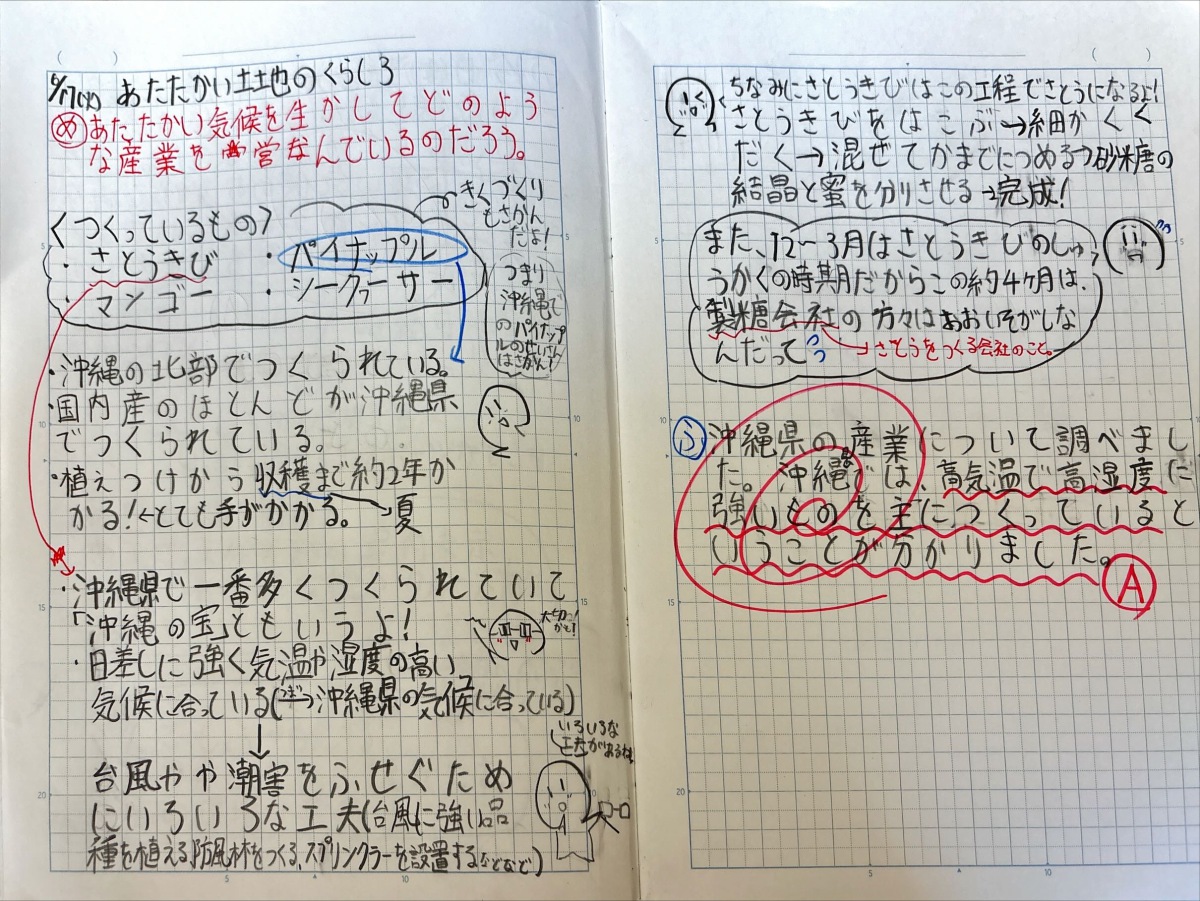 6/17(火) あたたかい土地のくらし3
め あたたかい気候を生かしてどのよう
な産業を営なんでいるのだろう。
きくづくり
もさかん
だよ!
<つくっているもの>
・さとうきび ・パイナップル
・マンゴー ・シークヮーサー
つまり
沖縄で
のパイナップ
ルのせいさん
はさかん!
・沖縄の北部でつくられている。
・国内産のほとんどが沖縄県
でつくられている。
・植えつけから収穫まで約2年か
かる!←とても手がかかる。 夏
・沖縄県で一番多くつくられていて
「沖縄の宝」ともいうよ!
大切っ!
・日差しに強く気温や湿度の高い
気候に合っている(つまり→沖縄県の気候に合っている)
↓
いろいろな
工夫があるね
台風やや潮害をふせぐため
にいろいろな工夫(台風に強い品
種を植える,防風林をつくる,スプリンクラーを設置するなどなど)
ちなみにさとうきびはこの工程でさとうになるよ!
さとうきびをはこぶ→細かくく
だく→混ぜてかまでにつめる→砂糖の
結晶と蜜を分りさせる→完成!
また、12〜3月はさとうきびのしゅ
うかくの時期だからこの約4ヶ月は、
製糖会社の方々はおおいそがしな
んだって
→さとうをつくる会社のこと。
ふ 沖縄県の産業について調べまし
た。沖縄では、高気温で高湿度に
強いものを主につくっていると
いうことが分かりました。
A